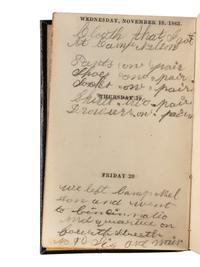 WEDNESDAY, NOVEMBER 18, 1863.
Cloth that I got
At Camp Nelson
Pants on pair
Shoes on pair
Socks on pair
THURSDAY 19
Shirts to pair
Drowers on pair
FRIDAY 20
we left Camp Nel
son and went
to Cincinnatio
and quarters on
fourth Streete
No 90 Sig and